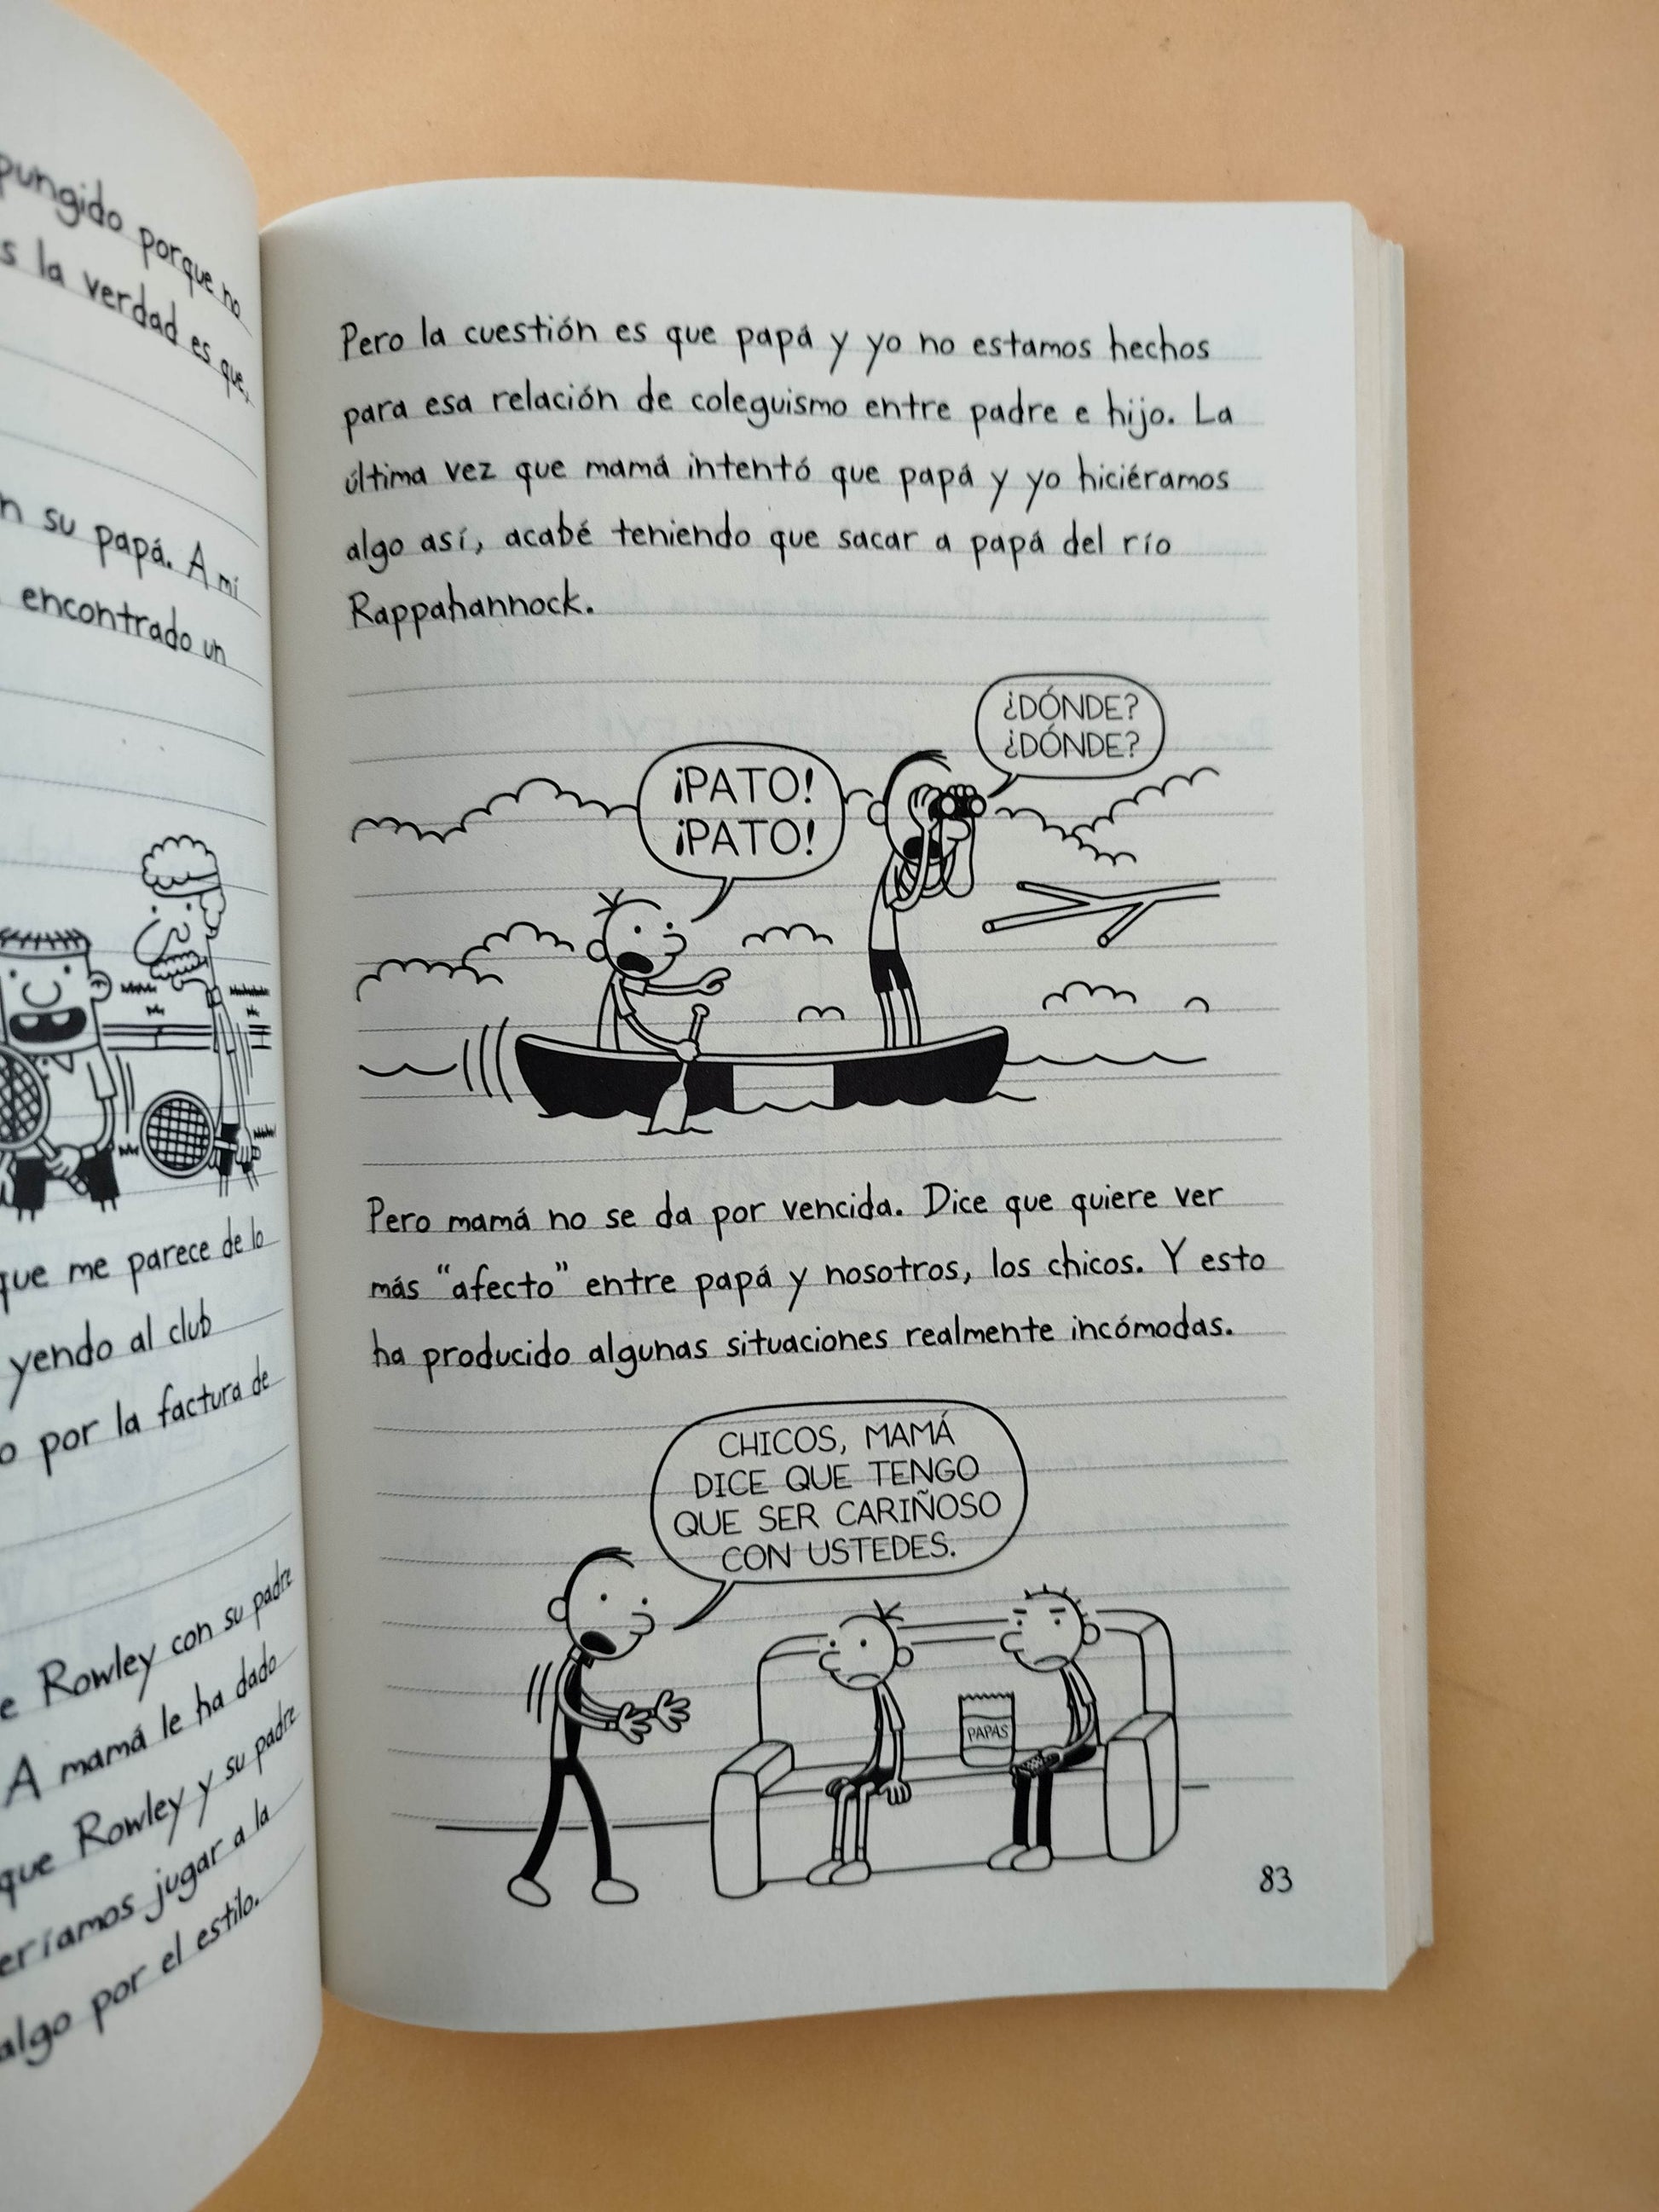 pungido porque no
s la verdad es que,
n su papá. A mí
encontrado un
que me parece de lo
yendo al club
o por la factura de
e Rowley con su padre
A mamá le ha dado
que Rowley y su padre
eríamos jugar a la
algo por el estilo.
Pero la cuestión es que papá y yo no estamos hechos
para esa relación de coleguismo entre padre e hijo. La
última vez que mamá intentó que papá y yo hiciéramos
algo así, acabé teniendo que sacar a papá del río
Rappahannock.
¿DÓNDE?
¿DÓNDE?
¡PATO!
¡PATO!
Pero mamá no se da por vencida. Dice que quiere ver
más “afecto” entre papá y nosotros, los chicos. Y esto
ha producido algunas situaciones realmente incómodas.
CHICOS, MAMÁ
DICE QUE TENGO
QUE SER CARIÑOSO
CON USTEDES.
PAPAS
83